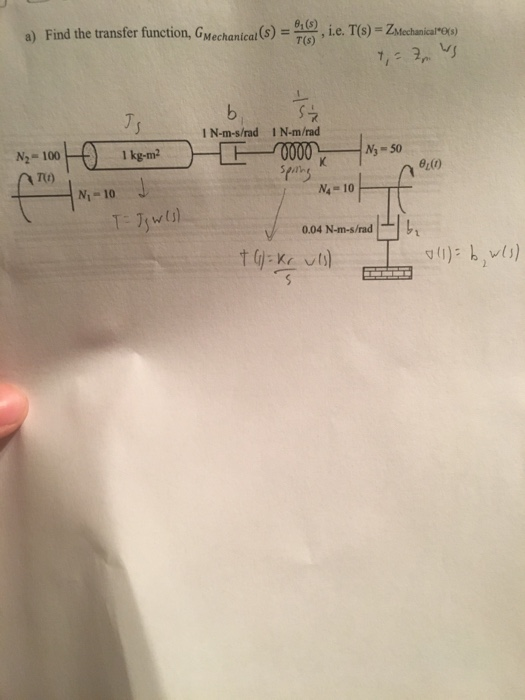 a) Find the transfer function, G_Mechanical(s) = θ₁(s)/T(s), i.e. T(s) = Z_Mechanical*Θ(s)
J_s
b
1 N-m-s/rad 1 N-m/rad
N₂ = 100
1 kg-m²
K
N₃ = 50
T(t)
spring
θ_L(t)
N₁ = 10
N₄ = 10
T = J_s w(s)
0.04 N-m-s/rad
b₂